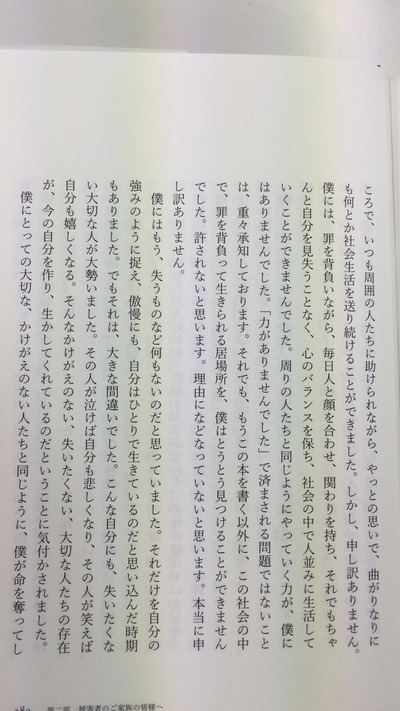 ころで、いつも周囲の人たちに助けられながら、やっとの思いで、曲がりなりに
も何とか社会生活を送り続けることができました。しかし、申し訳ありません。
僕には、罪を背負いながら、毎日人と顔を合わせ、関わりを持ち、それでもちゃ
んと自分を見失うことなく、心のバランスを保ち、社会の中で人並みに生活して
いくことができませんでした。周りの人たちと同じようにやっていく力が、僕に
はありませんでした。「力がありませんでした」で済まされる問題ではないこと
は、重々承知しております。それでも、もうこの本を書く以外に、この社会の中
で、罪を背負って生きられる居場所を、僕はとうとう見つけることができません
でした。許されないと思います。理由になどなっていないと思います。本当に申
し訳ありません。
僕にはもう、失うものなど何もないのだと思っていました。それだけを自分の
強みのように捉え、傲慢にも、自分はひとりで生きているのだと思い込んだ時期
もありました。でもそれは、大きな間違いでした。こんな自分にも、失いたくな
い大切な人が大勢いました。その人が泣けば自分も悲しくなり、その人が笑えば
自分も嬉しくなる。そんなかけがえのない、失いたくない、大切な人たちの存在
が、今の自分を作り、生かしてくれているのだということに気付かされました。
僕にとっての大切な、かけがえのない人たちと同じように、僕が命を奪ってし
第二部 被害者のご家族の皆様へ